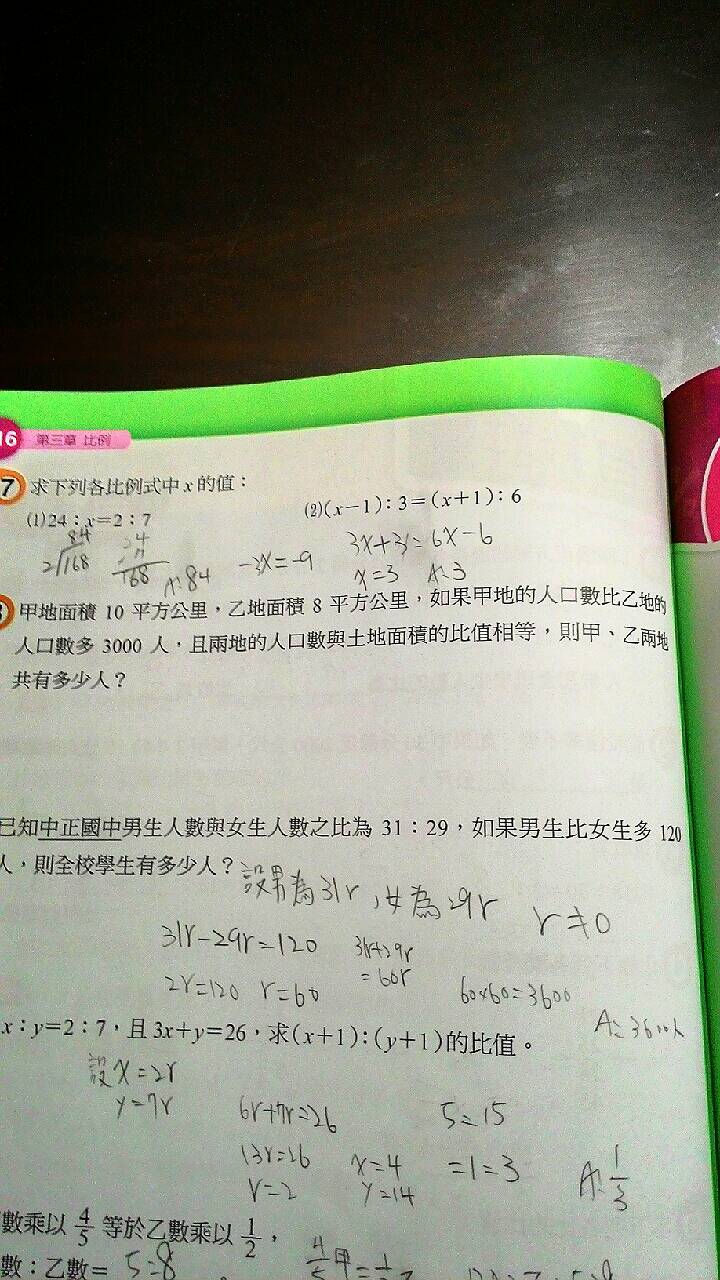 16 第三章 比例
7 求下列各比例式中 x 的值：
(1)24：x=2：7
(2)(x-1)：3=(x+1)：6
84
2)168
168
A:84
-3x=-9
3x+3=6x-6
x=3 A:3
甲地面積 10 平方公里，乙地面積 8 平方公里，如果甲地的人口數比乙地的
人口數多 3000 人，且兩地的人口數與土地面積的比值相等，則甲、乙兩地
共有多少人？
已知中正國中男生人數與女生人數之比為 31：29，如果男生比女生多 120
人，則全校學生有多少人？
設男為31r，女為29r r≠0
31r-29r=120
31r+29r
=60r
2r=120 r=60
60×60=3600
A:3600人
x：y=2：7，且 3x+y=26，求(x+1)：(y+1)的比值。
設x=2r
y=7r
6r+7r=26
5:15
13r=26
x=4
=1:3
A:1/3
r=2
y=14
數乘以 4/5 等於乙數乘以 1/2，
數：乙數= 5:8